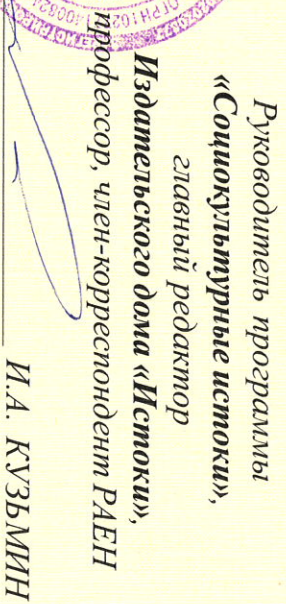 Руководитель программы
«Социокультурные истоки»,
главный редактор
Издательского дома «Истоки»,
профессор, член-корреспондент РАЕН
И.А. КУЗЬМИН